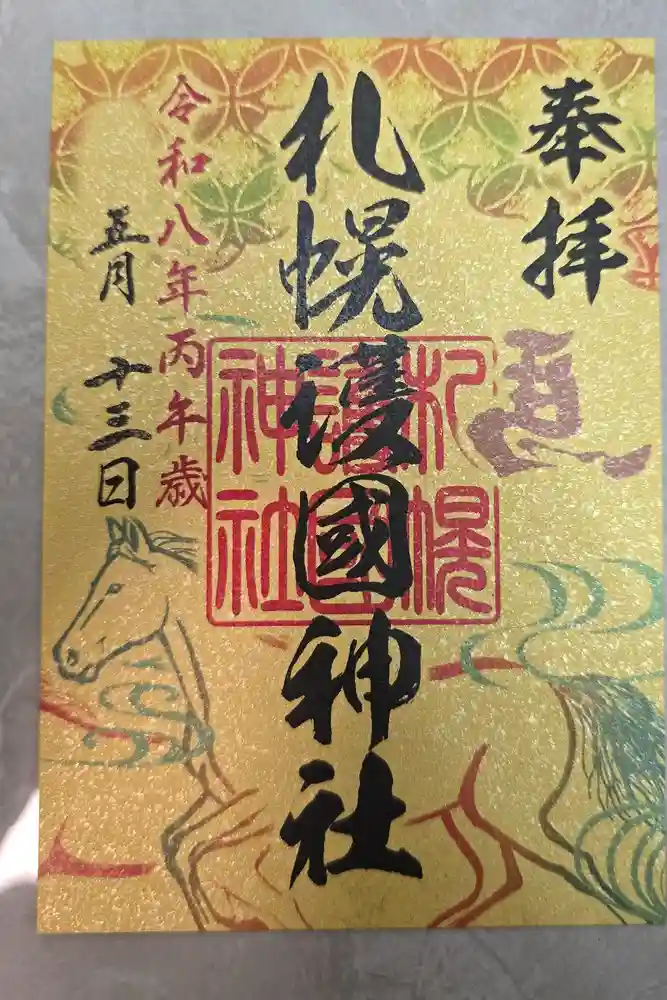 奉拝
札幌護國神社
札幌
護國
神社
令和八年丙午歳
五月十三日